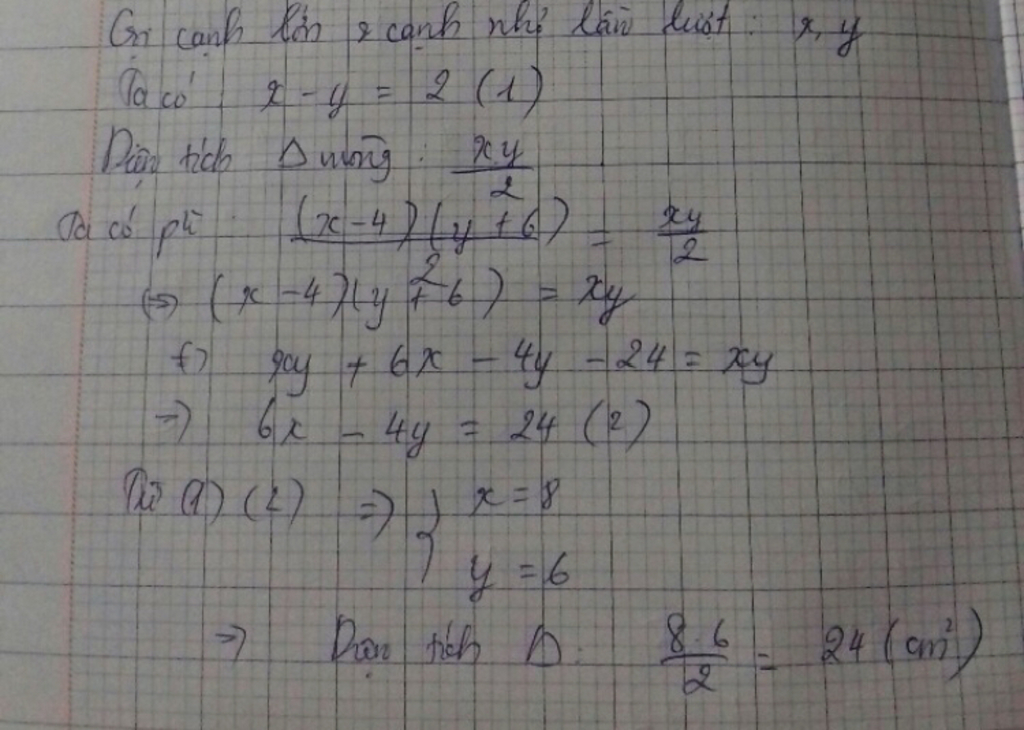 Gọi cạnh lớn & cạnh nhỏ lần lượt : x, y
Ta có : x - y = 2 (1)
Diện tích Δ vuông : \frac{xy}{2}
Ta có pt : \frac{(x-4)(y+6)}{2} = \frac{xy}{2}
<=> (x - 4)(y + 6) = xy
<=> xy + 6x - 4y - 24 = xy
=> 6x - 4y = 24 (2)
Từ (1) (2) => } x = 8
y = 6
=> Diện tích Δ : \frac{8.6}{2} = 24 (cm²)